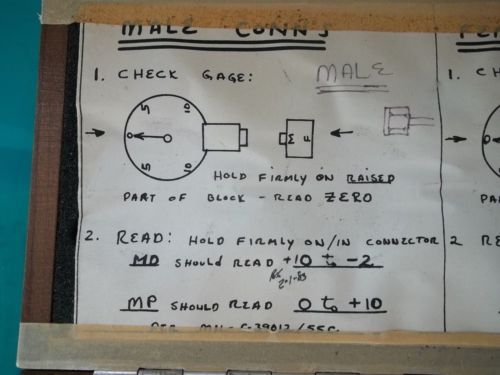 MALE CONN'S
1. CHECK GAGE: MALE
5 10
0
5 10
M F
HOLD FIRMLY ON RAISED
PART OF BLOCK - READ ZERO
2. READ: HOLD FIRMLY ON/IN CONNECTOR
MD SHOULD READ +10 to -2
2-1-83
MP SHOULD READ 0 to +10
PER MIL-C-39012/55C
1. CH
PA
2 RE